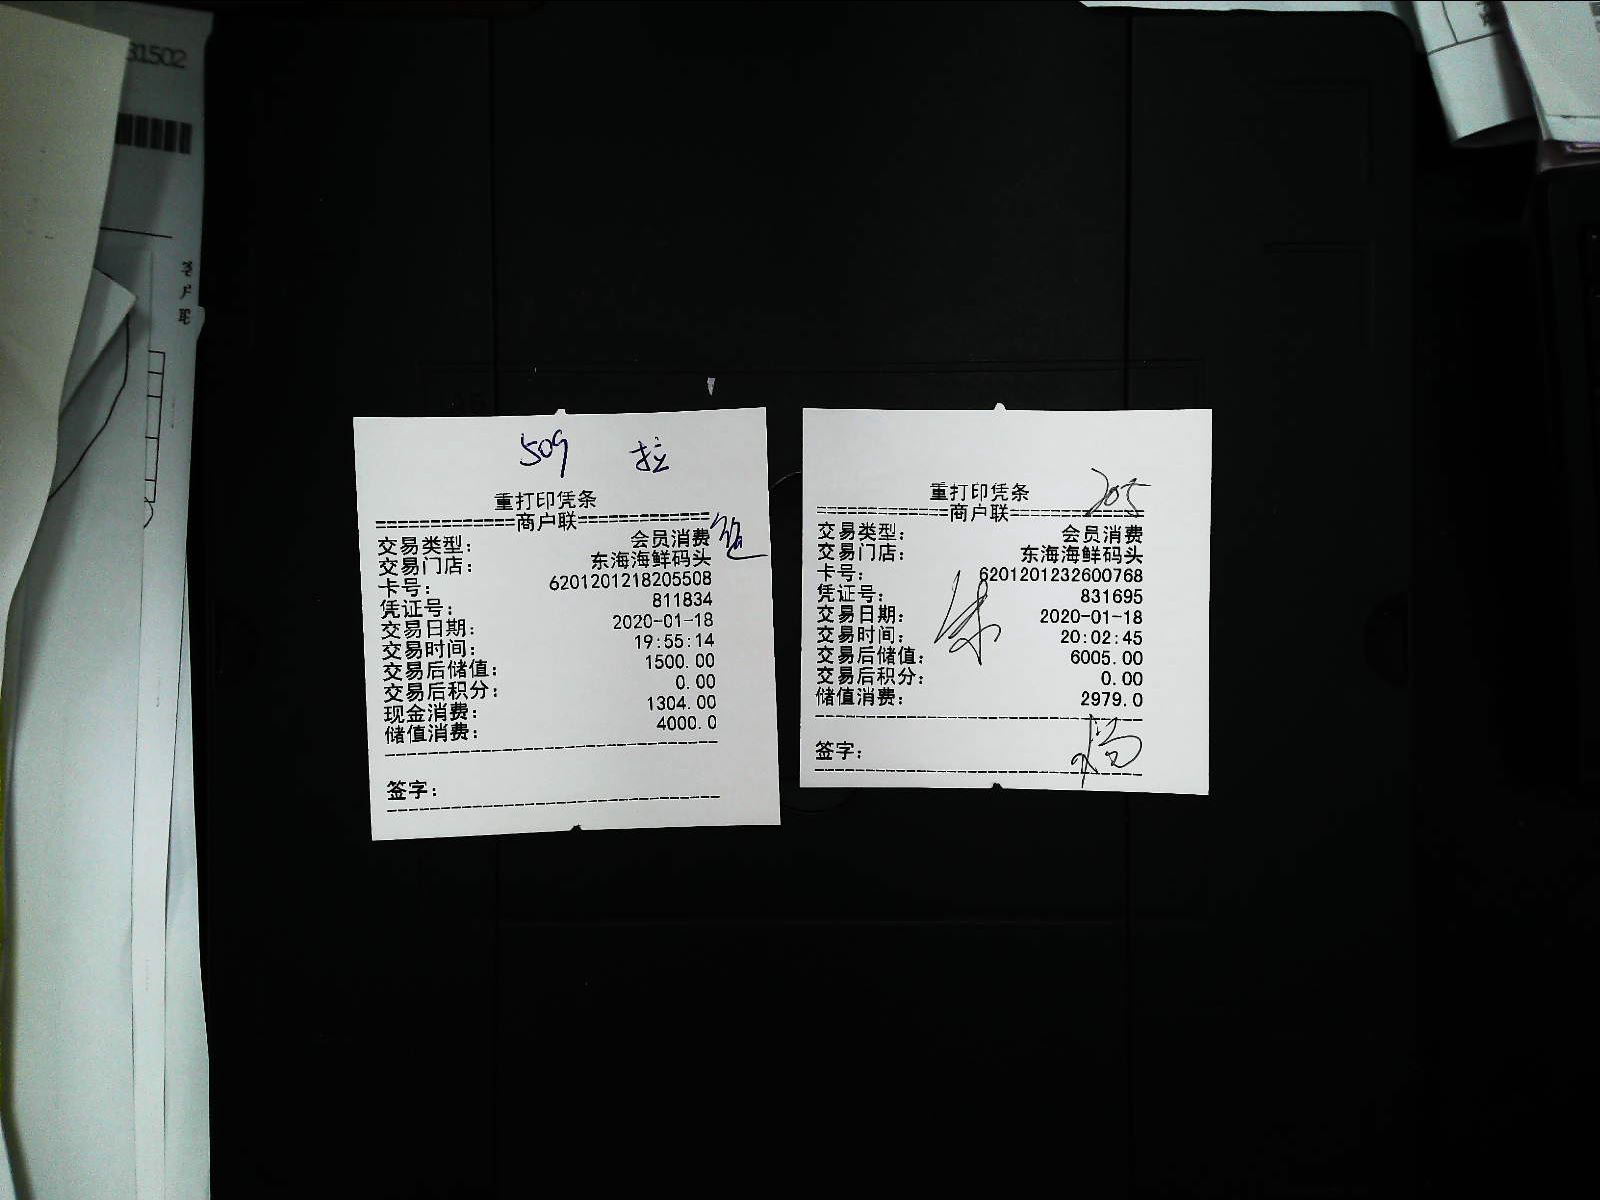 31502
客
户
联
509 拉
重打印凭条
=============商户联=============
交易类型: 会员消费
交易门店: 东海海鲜码头
卡号: 6201201218205508
凭证号: 811834
交易日期: 2020-01-18
交易时间: 19:55:14
交易后储值: 1500.00
交易后积分: 0.00
现金消费: 1304.00
储值消费: 4000.0
签字:
205
重打印凭条
=============商户联=============
交易类型: 会员消费
交易门店: 东海海鲜码头
卡号: 6201201232600768
凭证号: 831695
交易日期: 2020-01-18
交易时间: 20:02:45
交易后储值: 6005.00
交易后积分: 0.00
储值消费: 2979.0
签字: 杨